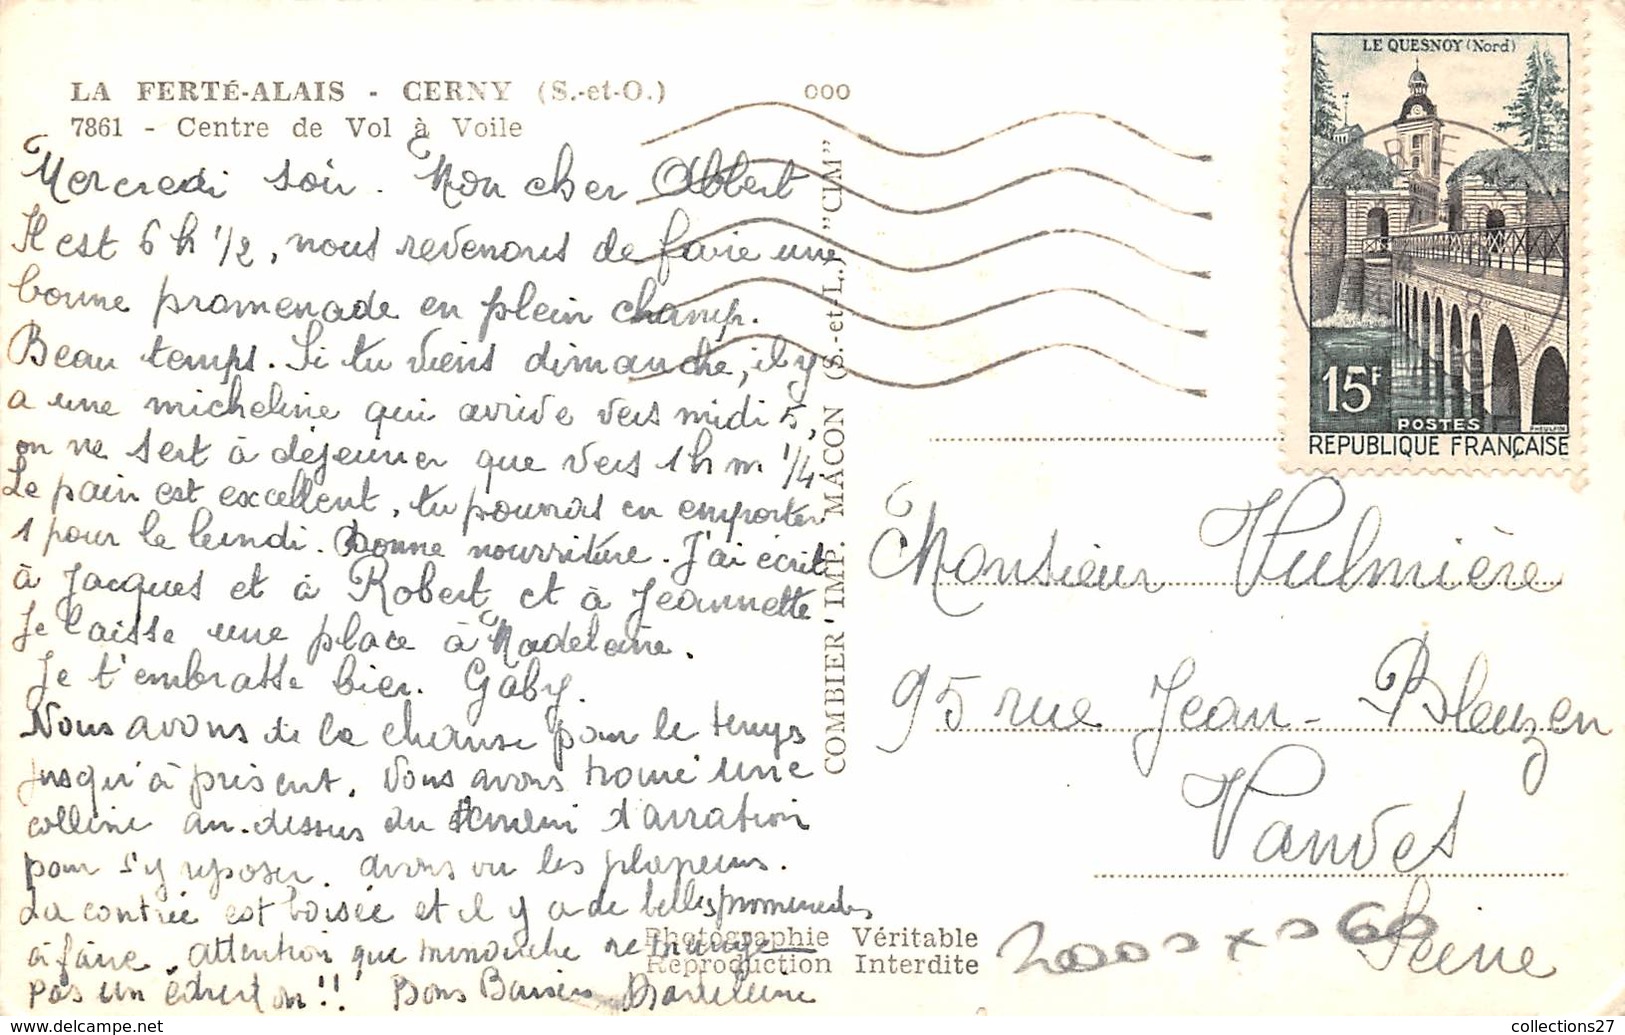 LA FERTÉ-ALAIS - CERNY (S.-et-O.)
7861 - Centre de Vol à Voile
000
Mercredi soir. Mon cher Albert
Il est 6 h 1/2, nous revenons de faire une
bonne promenade en plein champ.
Beau temps. Si tu viens dimanche, il y
a une micheline qui arrive vers midi 5,
on ne sert à déjeuner que vers 1 h m 1/4
Le pain est excellent, tu pourras en emporter
1 pour le lundi. Bonne nourriture. J'ai écrit
à Jacques et à Robert et à Jeannette
Je laisse une place à Madeleine.
Je t'embrasse bien. Gaby.
Nous avons de la chance pour le temps
jusqu'à présent. Nous avons trouvé une
colline au-dessus du terrain d'aviation
pour s'y reposer. avons vu les planeurs.
La contrée est boisée et il y a de belles promenades
à faire. Attention que minouche ne mange
pas un édredon !! Bons Baisers Madeleine
COMBIER IMP. MÂCON (S.-et-L.) "CIM"
Photographie Véritable
Reproduction Interdite
LE QUESNOY (Nord)
15F
POSTES
REPUBLIQUE FRANÇAISE
Monsieur Vulmière
95 rue Jean-Bleuzen
Vanves
Seine
collections27